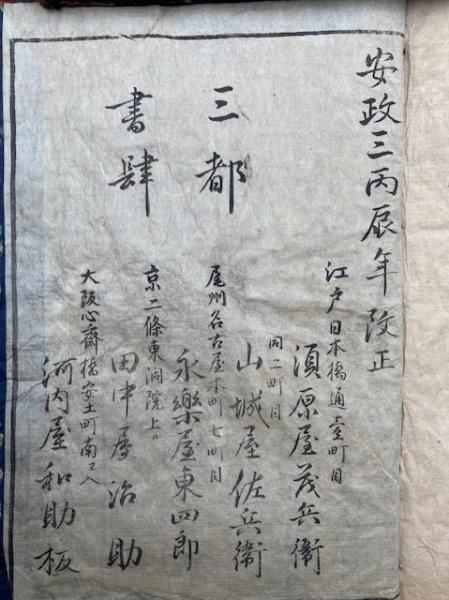 安政三丙辰年改正
三都
書肆
江戸日本橋通壱町目
須原屋茂兵衛
同二町目
山城屋佐兵衛
尾州名古屋本町七町目
永樂屋東四郎
京二條東洞院上ル
田中屋治助
大阪心齋橋安土町南ヱ入
河内屋和助板